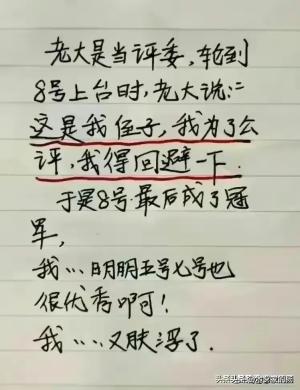 老大是当评委,轮到
8号上台时,老大说:
这是我侄子,我为了公
评,我得回避一下.
于是8号最后成了冠
军,
我…明明五号七号也
很优秀啊可!
我……又肤浅了.